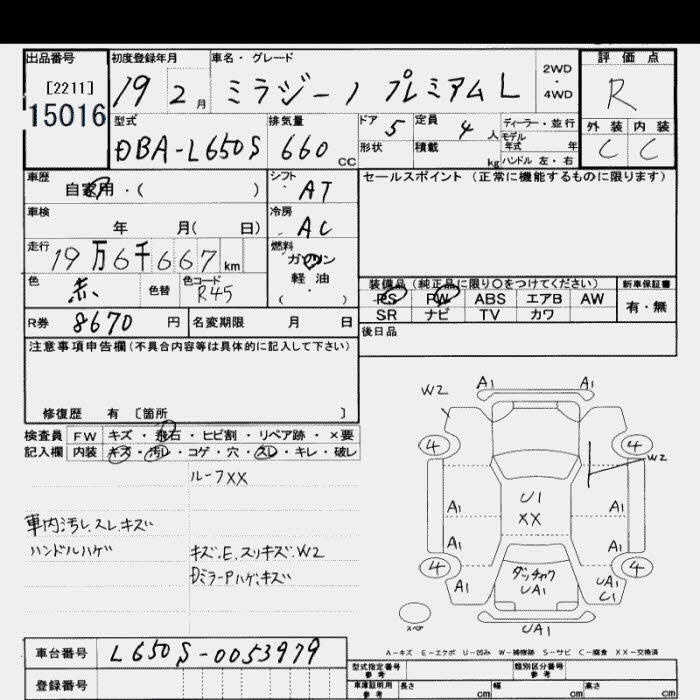 出品番号
[2211]
15016
初度登録年月
19 2月
車名・グレード
ミラジーノ プレミアムL
2WD
・
4WD
評価点
R
外装 内装
C C
型式
DBA-L650S
排気量
660 CC
ドア
5
定員
4人
ディーラー・並行
モデル
年式 年
形状
積載
kg
ハンドル 左・右
車歴
自家用・( )
シフト
AT
セールスポイント(正常に機能するものに限ります)
車検
年 月( 日)
冷房
AC
走行
19万6千667km
燃料
ガソリン
軽・油
( )
色
赤
色替
色コード
R45
装備品(純正品に限り〇をつけてください)
新車保証書
PS PW ABS エアB AW
有・無
SR ナビ TV カワ
R券 8670 円
名変期限 月 日
後日品
注意事項申告欄(不具合内容等は具体的に記入して下さい)
修復歴 有 〔箇所 〕
検査員 FW キズ・飛石・ヒビ割・リペア跡・×要
記入欄 内装 キズ・汚レ・コゲ・穴・スレ・キレ・破レ
ルーフXX
車内汚レ.スレ.キズ
ハンドルハゲ
キズ.E.スリキズ.W2
ミラーPハゲ.キズ
W2
A1 A1
4 4
W2
U1
XX
A1 A1
A1 A1
4 4
ダッチャク
UA1
A1
UA1
C1
スペア
UA1
A-キズ E-エクボ U-凹み W-補修跡 S-サビ C-腐食 XX-交換済
車台番号 L650S-0053979
登録番号
型式指定番号
参考
類別区分番号
参考
車庫証明用
参考
長さ cm
幅 cm
高さ cm